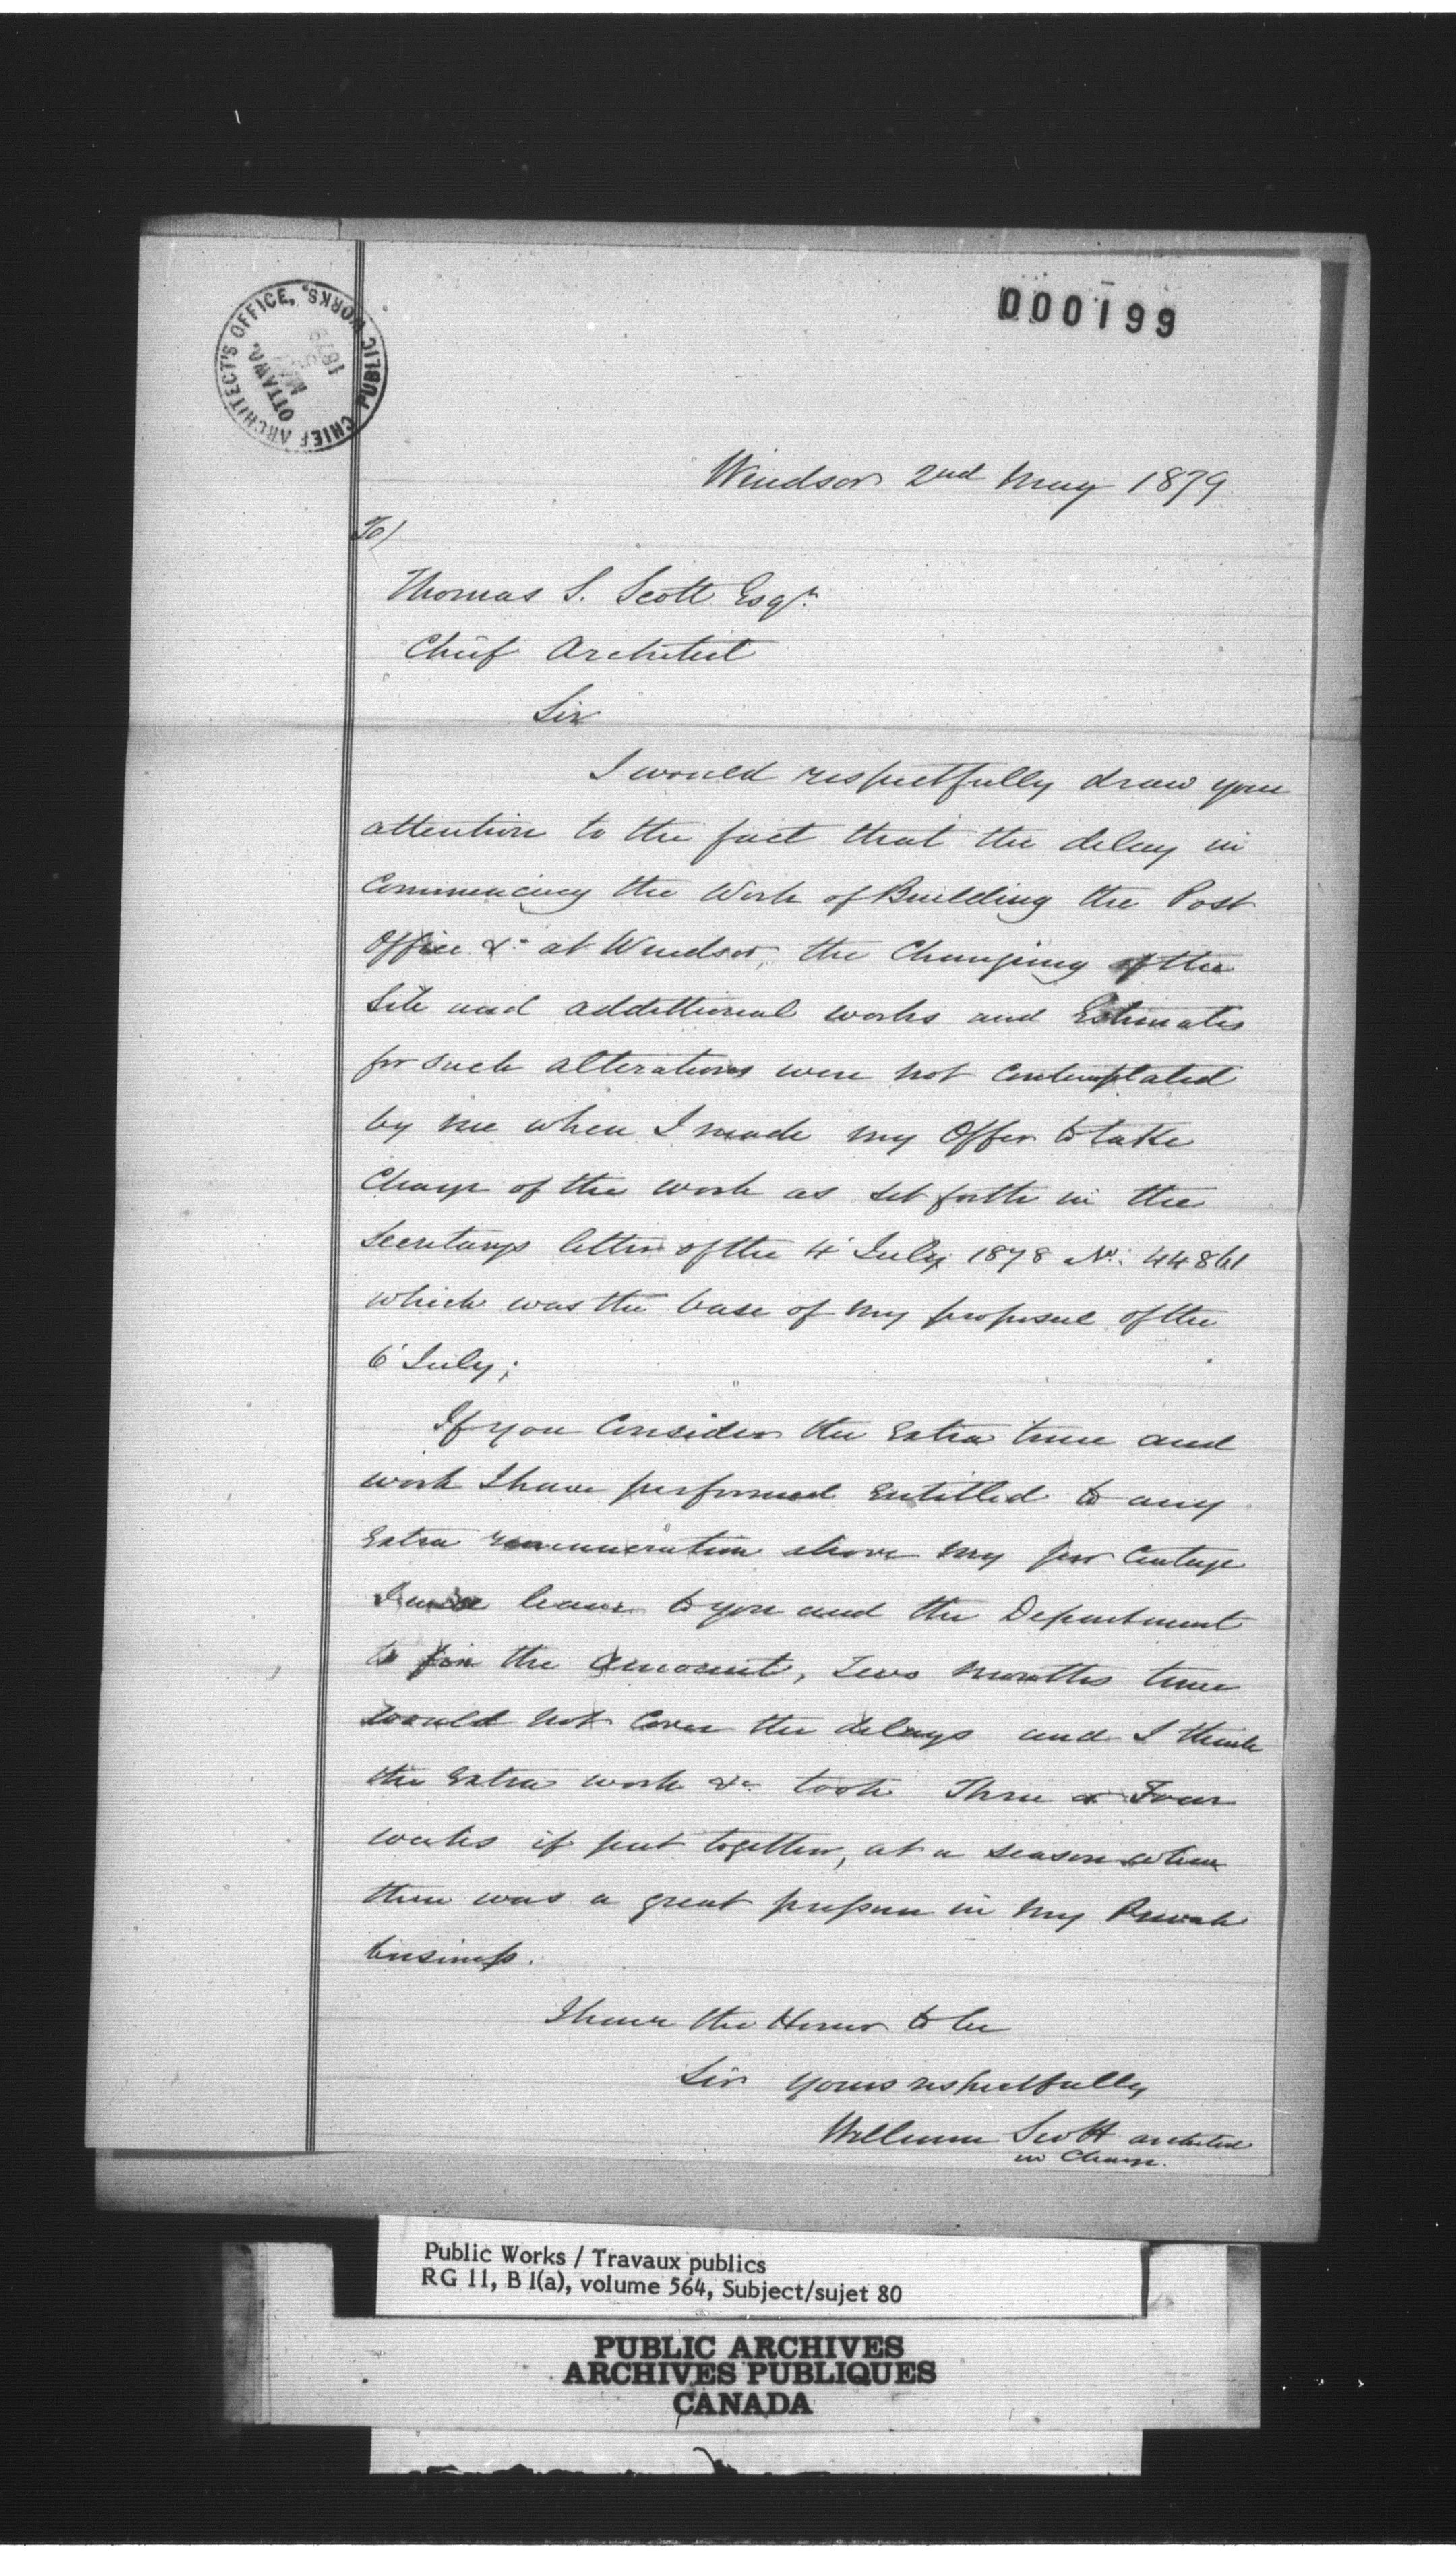 000199
CHIEF ARCHITECT'S OFFICE, PUBLIC WORKS,
OTTAWA.
MAY 5 1879
Windsor 2nd May 1879
To/
Thomas S. Scott Esqr.
Chief Architect
Sir
I would respectfully draw your
attention to the fact that the delay in
Commencing the Work of Building the Post
Office &c at Windsor, the Changeing of the
Site and additional works and Estimates
for such alterations were not Contemplated
by me when I made my Offer to take
Charge of the work as set forth in the
Secretarys letter of the 4' July 1878 No: 44861
which was the base of my proposal of the
6' July;
If you Consider the Extra time and
work I have performed Entitled to any
Extra remuneration above my per Centage
I leave to you and the Department
to fix the amount, Two months time
would not Cover the delays and I think
the Extra work &c. took Three or Four
weeks if put together, at a season when
there was a great pressure in my Private
business.
I have the Honor to be
Sir yours respectfully
William Scott architect
in Charge.
Public Works / Travaux publics
RG 11, B 1(a), volume 564, Subject/sujet 80
PUBLIC ARCHIVES
ARCHIVES PUBLIQUES
CANADA